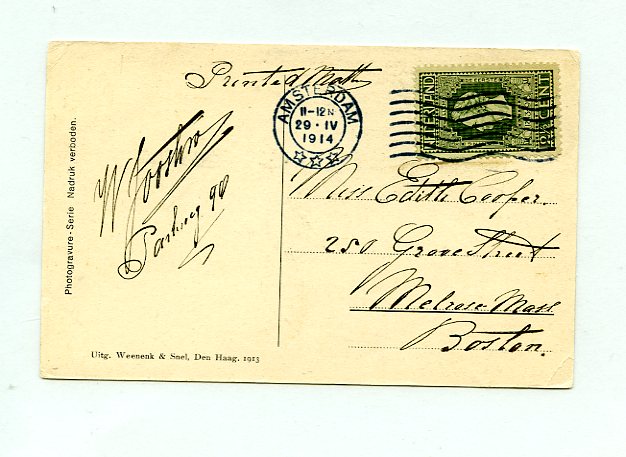 Printed Matter
AMSTERDAM
11-12N
29 · IV
1914
NEDERLAND
2½ CENT
Miss Edith Cooper.
250 Grove Street
Melrose Mass
Boston.
W
Parkweg 90
Photogravure-Serie Nadruk verboden.
Uitg. Weenenk & Snel, Den Haag. 1913